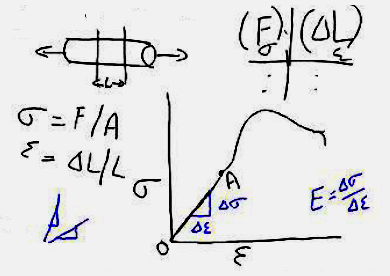 (F) (ΔL)
σ ε
L
σ = F/A
ε = ΔL/L
σ
A
Δσ
Δε
E = Δσ/Δε
O
ε